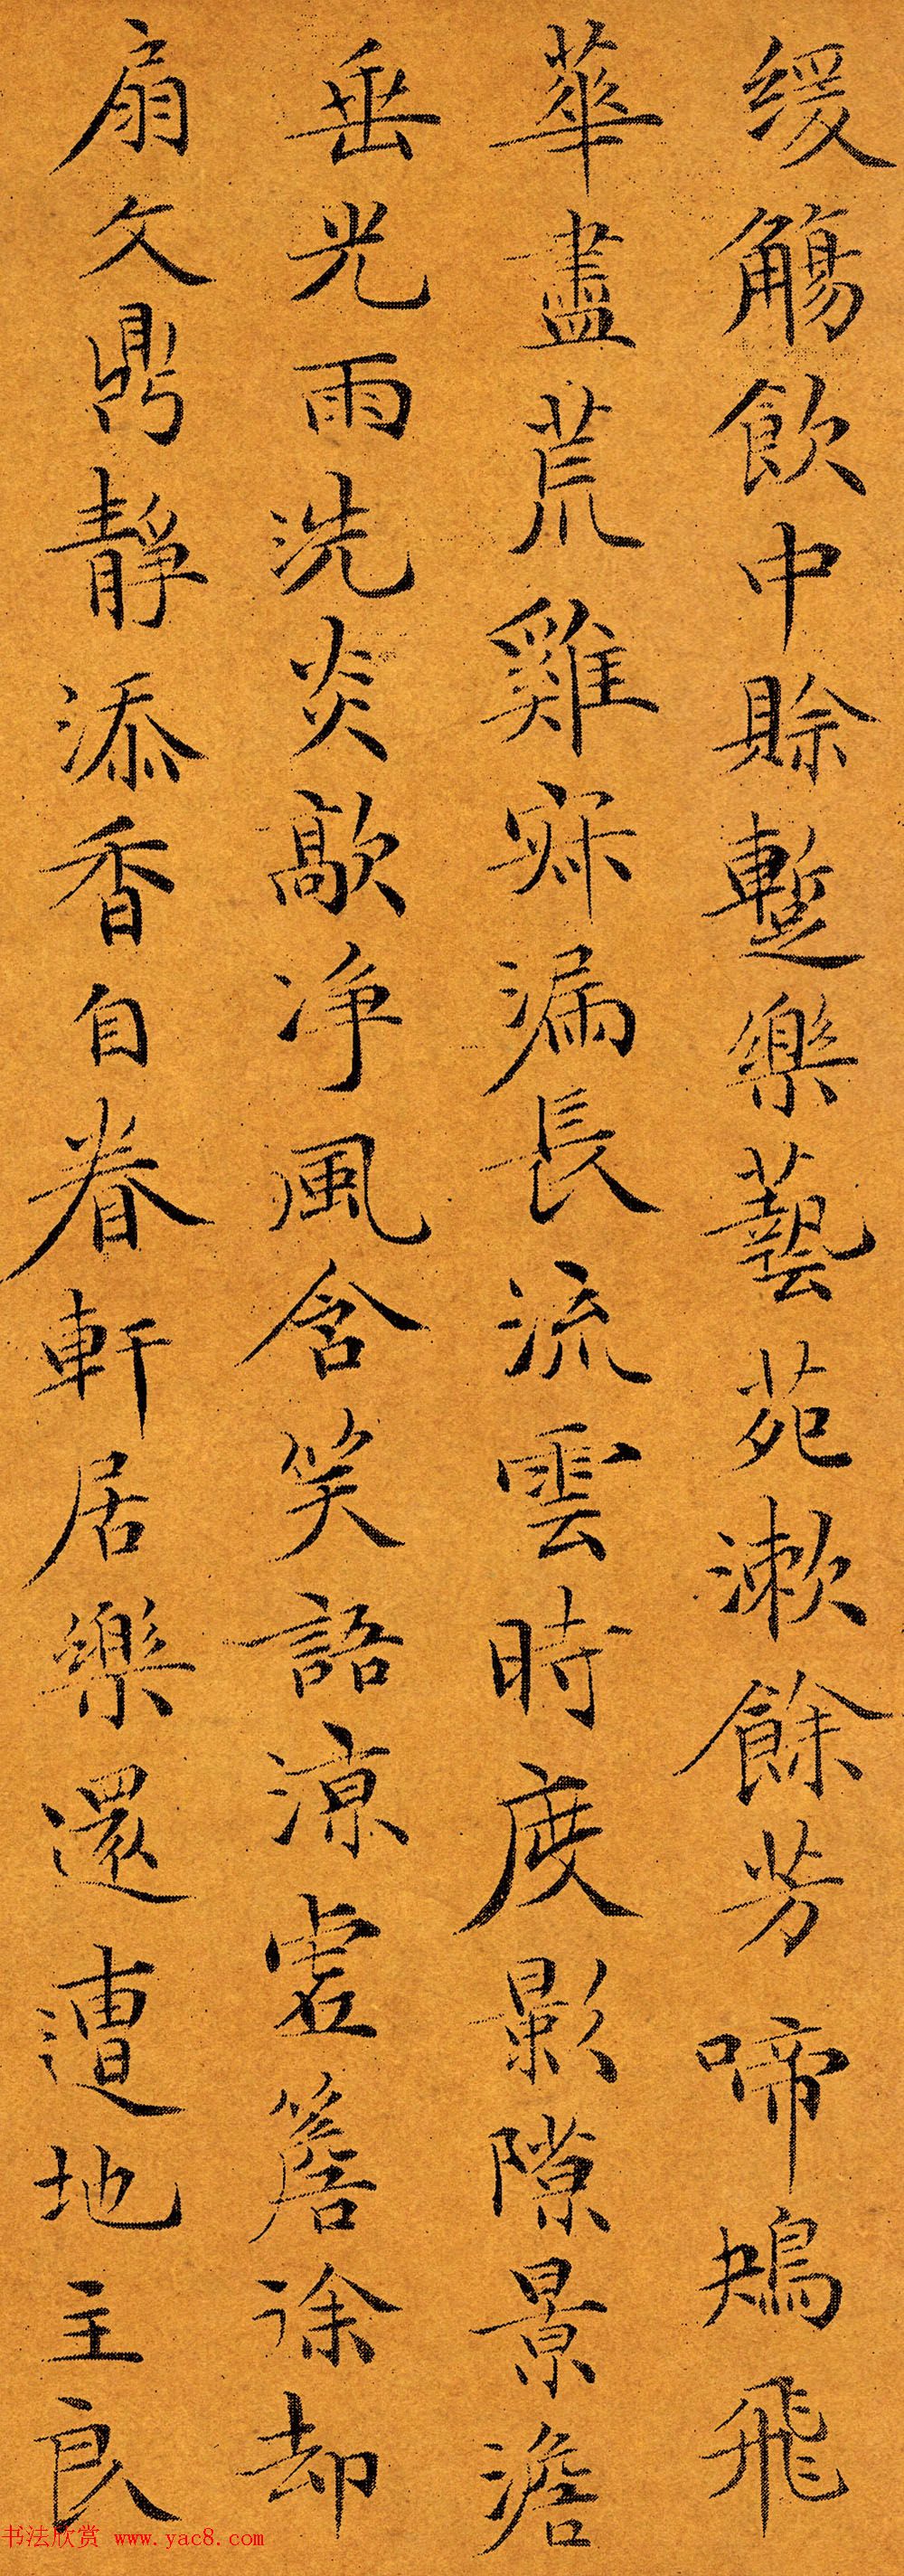 缓觴飲中賒蹔樂藝苑漱餘芳啼鴂飛
華盡荒雞寐漏長流雲時度影隙景澹
垂光雨洗炎歊净風含笑語凉虛簷徐却
扇文鼎靜添香自眷軒居樂還遭地主良
书法欣赏 www.yac8.com